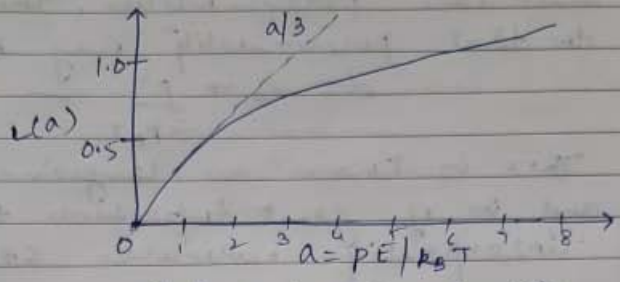 a/3
1.0
L(a)
0.5
0 1 2 3 4 5 6 7 8
a = pE/k_BT